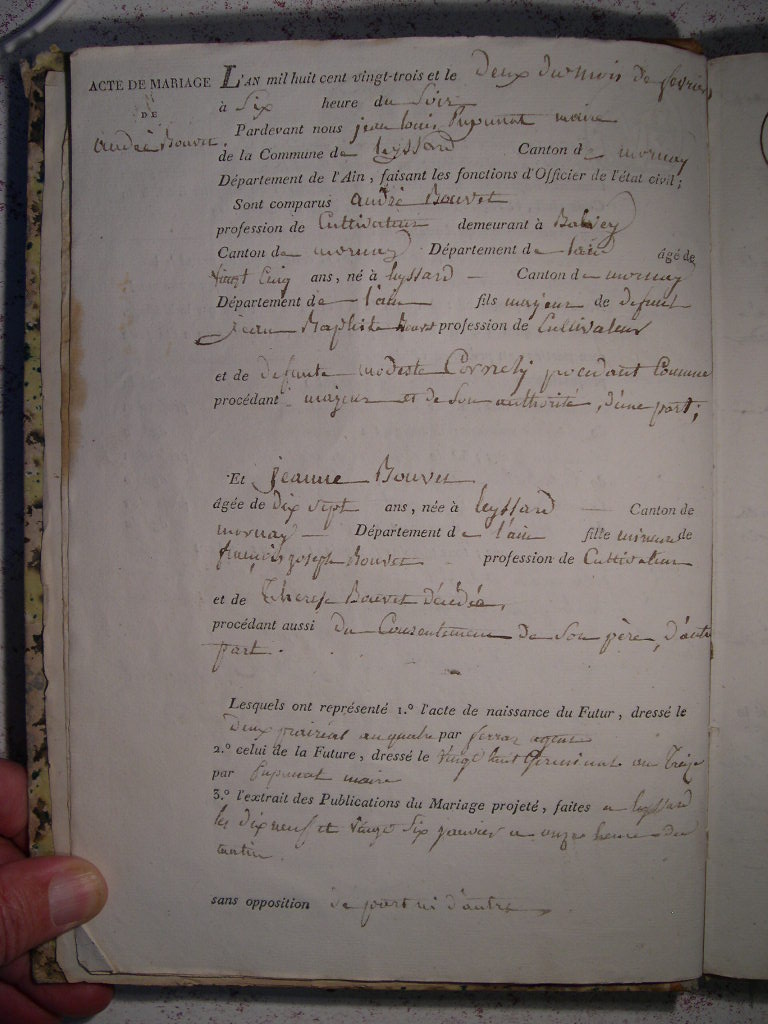 ACTE DE MARIAGE
DE
andré Bouvet
L'AN mil huit cent vingt-trois et le deux du mois de fevrier
à Six heure du Soir
Pardevant nous jean louis Pupunat maire
de la Commune de leyssard Canton de mornay
Département de l'Ain, faisant les fonctions d'Officier de l'état civil;
Sont comparus andré Bouvet
profession de Cultivateur demeurant à Balvey
Canton de mornay Département de l'ain âgé de
vingt Cinq ans, né à leyssard Canton de mornay
Département de l'ain fils majeur de defunt
jean Baptiste Bouvet profession de Cultivateur
et de defunte modeste Cornely procedant Comme
procédant majeur et de Son authorité, d'une part;
Et jeanne Bouvet
âgée de dix sept ans, née à leyssard Canton de
mornay Département de l'ain fille mineure de
françois joseph Bouvet profession de Cultivateur
et de Therese Bouvet décédée,
procédant aussi du Consentement de Son père, d'autre
part.
Lesquels ont représenté 1.° l'acte de naissance du Futur, dressé le
deux prairéal an quatre par ferraz agent
2.° celui de la Future, dressé le vingt huit Germinal an Treize
par Pupunat maire
3.° l'extrait des Publications du Mariage projeté, faites a leyssard
les dix neuf et vingt Six janvier a onze heures du
matin.
sans opposition de part ni d'autre